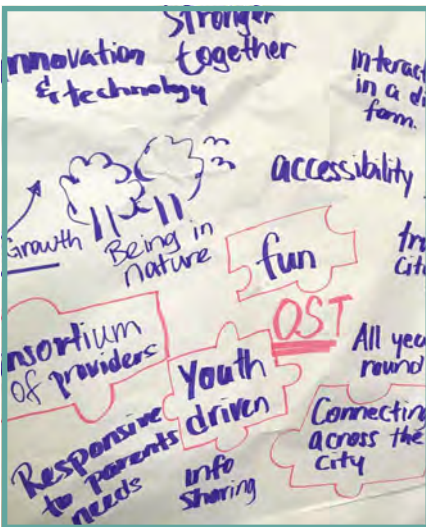 Stronger
together
innovation
& technology
interact
in a di
form.
accessibility
Growth
Being in
nature
fun
OST
nsortium
of providers
Youth
driven
All yea
round
Connecting
across the
city
Responsive
to parents
needs
info
sharing